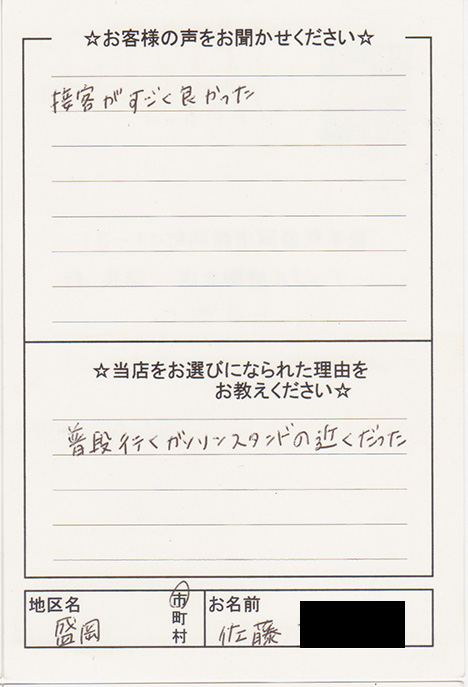 ☆お客様の声をお聞かせください☆
接客がすごく良かった
☆当店をお選びになられた理由を
お教えください☆
普段行くガソリンスタンドの近くだった
地区名
盛岡
市
町
村
お名前
佐藤